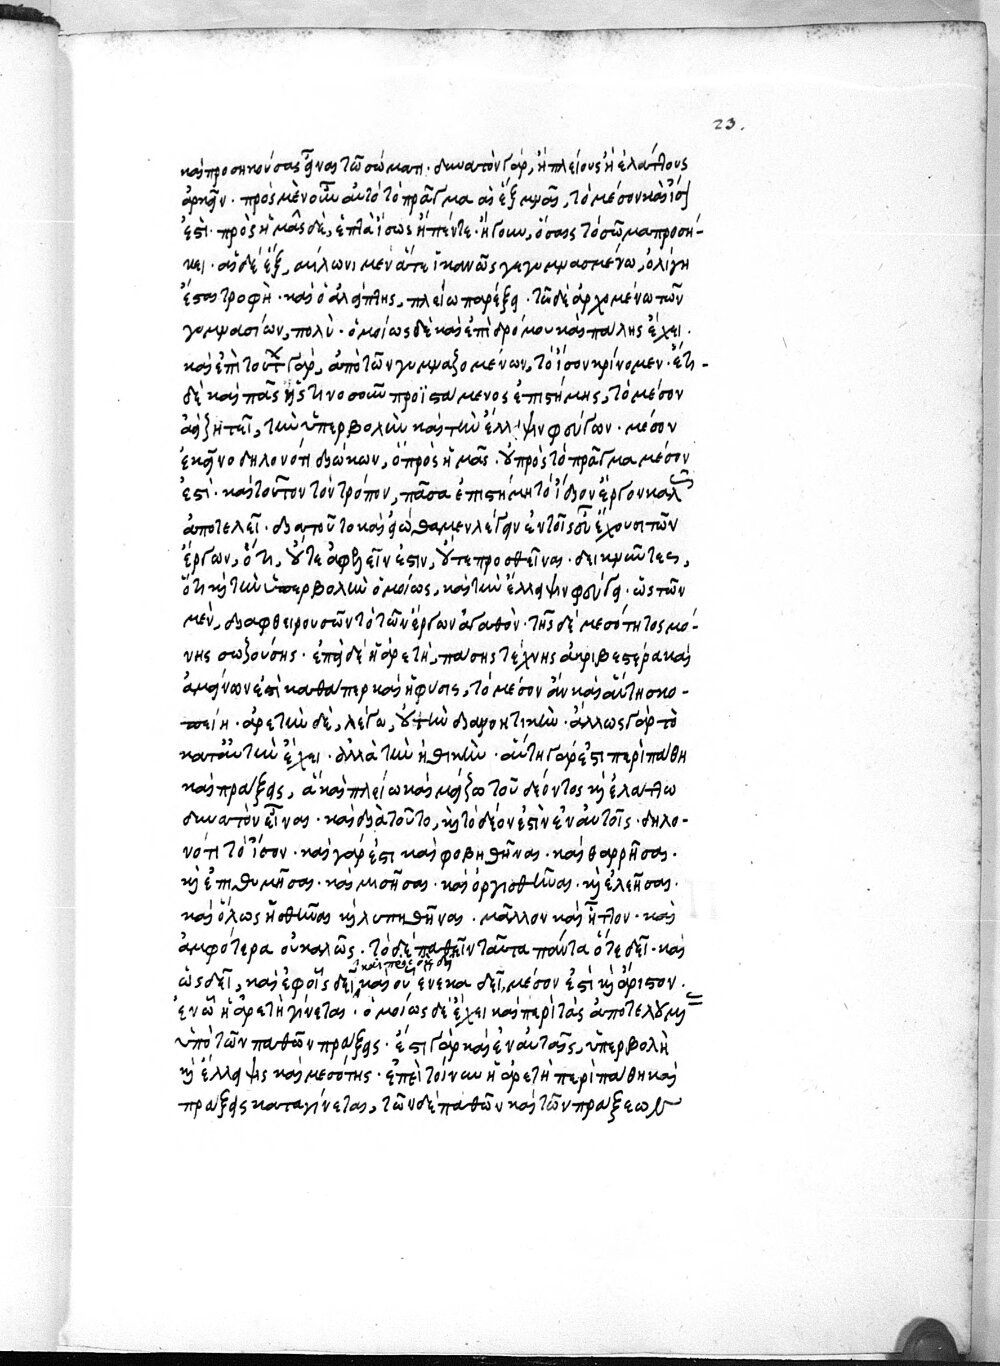 23.
καὶ προσηκούσας εἶναι τῶ σώματι· δυνατὸν γάρ, ἢ πλείους ἢ ἐλάττους
ἀρκεῖν· πρὸς μὲν οὖν αὐτὸ τὸ πρᾶγμα αἱ ἓξ μναῖ, τὸ μέσον καὶ ἴσον
ἐστί· πρὸς ἡμᾶς δὲ, ἑπτὰ ἴσως ἢ πέντε· ἤγουν, ὅσαις τὸ σῶμα προσή-
κει· αἱ δὲ ἓξ, μίλωνι μὲν ἅτε ἱκανῶς γεγυμνασμένω, ὀλίγη
ἔσται τροφὴ· καὶ ὁ ἀλείπτης, πλείω παρέξει· τῶ δὲ ἀρχομένω τῶν
γυμνασίων, πολύ· ὁμοίως δὲ καὶ ἐπὶ δρόμου καὶ πάλης ἔχει·
καὶ ἐπὶ τούτων γάρ, ἀπὸ τῶν γυμναζομένων, τὸ ἴσον κρίνομεν· ἔτι-
δὲ καὶ πᾶς ἧς τινοσοῦν προϊστάμενος ἐπιστήμης, τὸ μέσον
ἀεὶ ζητεῖ, τὴν ὑπερβολὴν καὶ τὴν ἔλλειψιν φεύγων· μέσον
ἐκεῖνο δηλονότι διώκων, ὃ πρὸς ἡμᾶς· οὐ πρὸς τὸ πρᾶγμα μέσον
ἐστί· καὶ τοῦτον τὸν τρόπον, πᾶσα ἐπιστήμη τὸ ἴδιον ἔργον καλῶς
ἀποτελεῖ· διὰ τοῦτο καὶ εἰώθαμεν λέγειν ἐν τοῖς εὖ ἔχουσι τῶν
ἔργων, ὅτι, οὔτε ἀφελεῖν ἐστιν, οὔτε προσθεῖναι· δεικνῦντες,
ὅτι καὶ τὴν ὑπερβολὴν ὁμοίως, καὶ τὴν ἔλλειψιν φεύγει· ὡς τῶν
μὲν, διαφθειρουσῶν τὸ τῶν ἔργων ἀγαθὸν· τῆς δὲ μεσότητος μό-
νης σωζούσης· ἐπεὶ δὲ ἡ ἀρετὴ, πάσης τέχνης ἀκριβεστέρα καὶ
ἀμείνων ἐστὶ καθάπερ καὶ ἡ φύσις, τὸ μέσον ἂν καὶ αὕτη σκο-
ποίη· ἀρετὴν δὲ, λέγω, οὐ τὴν διανοητικὴν· ἄλλως γὰρ τὸ
κατ' αὐτὴν ἔχει· ἀλλὰ τὴν ἠθικὴν· αὕτη γάρ ἐστι περὶ πάθη
καὶ πράξεις, ἃ καὶ πλείω καὶ μείζω τοῦ δέοντος καὶ ἐλάττω
δυνατὸν εἶναι· καὶ διὰ τοῦτο, καὶ τὸ δέον ἐστὶν ἐν αὐτοῖς· δηλο-
νότι τὸ ἴσον· καὶ γάρ ἐστι καὶ φοβηθῆναι· καὶ θαρρῆσαι·
καὶ ἐπιθυμῆσαι· καὶ μισῆσαι· καὶ ὀργισθῆναι· καὶ ἐλεῆσαι·
καὶ ὅλως ἡσθῆναι καὶ λυπηθῆναι· μᾶλλον καὶ ἧττον· καὶ
ἀμφότερα οὐ καλῶς· τὸ δὲ παθεῖν ταῦτα πάντα ὅτε δεῖ· καὶ
καὶ πρὸς οὓς δεῖ
ὡς δεῖ, καὶ ἐφ' οἷς δεῖ, καὶ οὗ ἕνεκα δεῖ, μέσον ἐστὶ καὶ ἄριστον·
ἐν ᾧ ἡ ἀρετὴ γίνεται· ὁμοίως δὲ ἔχει καὶ περὶ τὰς ἀποτελουμένας
ὑπὸ τῶν παθῶν πράξεις· ἔστι γὰρ καὶ ἐν αὐταῖς, ὑπερβολὴ
καὶ ἔλλειψις καὶ μεσότης· ἐπεὶ τοίνυν ἡ ἀρετὴ περὶ πάθη καὶ
πράξεις καταγίνεται, τῶν δὲ παθῶν καὶ τῶν πράξεων